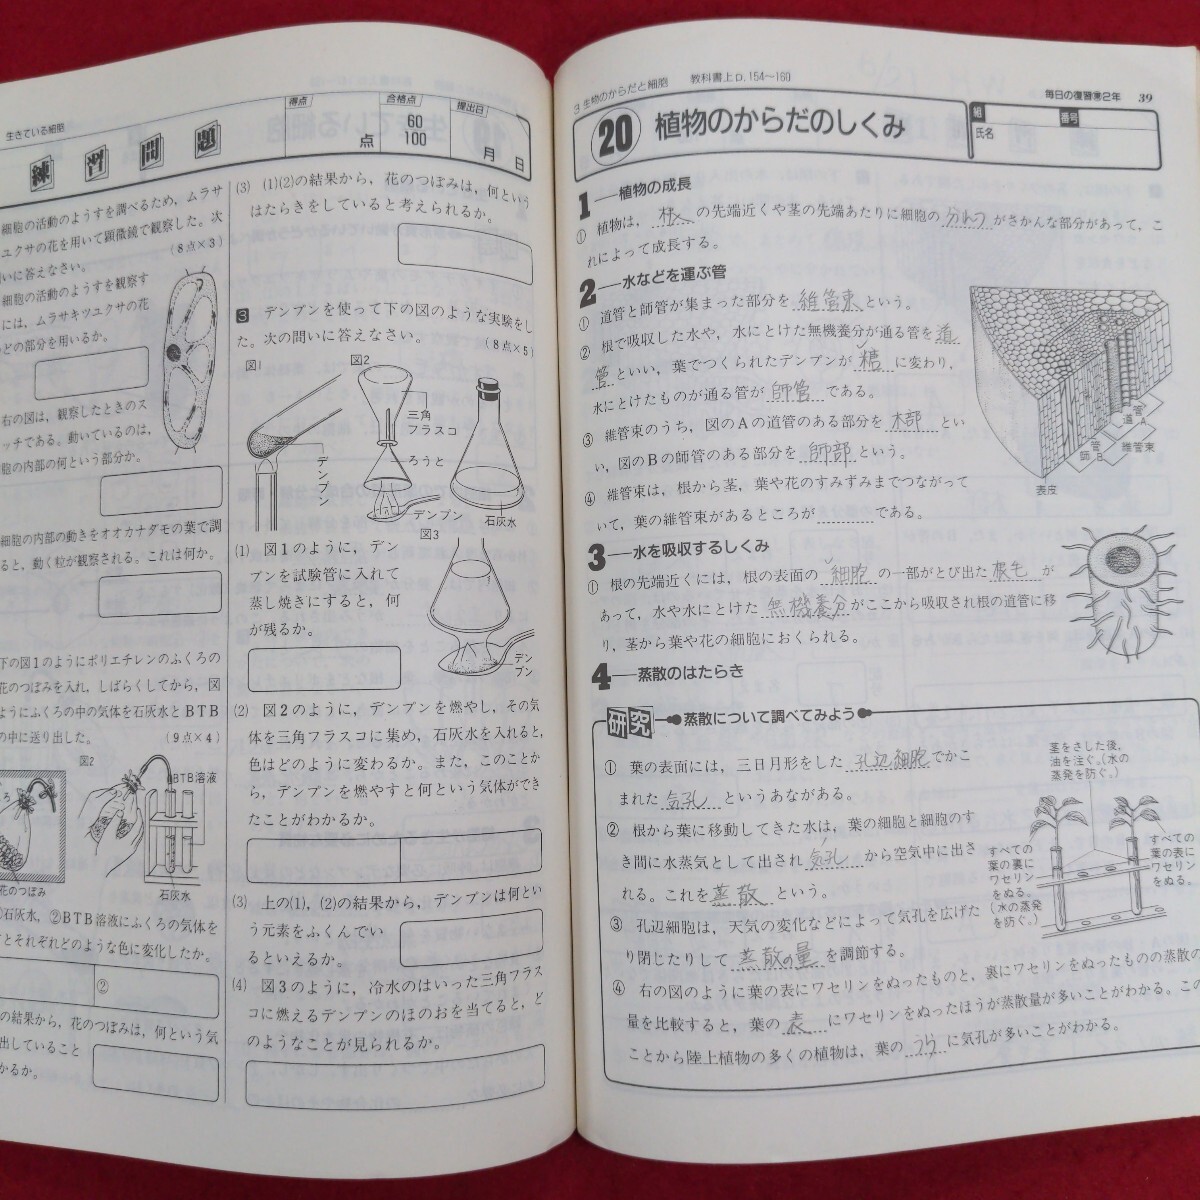 生きている細胞
練習問題
得点
点
合格点
60
100
提出日
月 日
細胞の活動のようすを調べるため，ムラサ
ユクサの花を用いて顕微鏡で観察した。次
いに答えなさい。
(8点×3)
細胞の活動のようすを観察す
には，ムラサキツユクサの花
どの部分を用いるか。
右の図は，観察したときのス
ッチである。動いているのは，
胞の内部の何という部分か。
細胞の内部の動きをオオカナダモの葉で調
ると，動く粒が観察される。これは何か。
下の図1のようにポリエチレンのふくろの
花のつぼみを入れ，しばらくしてから，図
ようにふくろの中の気体を石灰水とBTB
の中に送り出した。
(9点×4)
図2
BTB溶液
花のつぼみ
石灰水
石灰水，②BTB溶液にふくろの気体を
とそれぞれどのような色に変化したか。
②
の結果から，花のつぼみは，何という気
出していること
かるか。
(3) (1)(2)の結果から，花のつぼみは，何という
はたらきをしていると考えられるか。
3 デンプンを使って下の図のような実験をし
た。次の問いに答えなさい。
(8点×5)
図1
図2
三角
フラスコ
ろうと
デンプン
デンプン
石灰水
図3
デン
プン
(1) 図1のように，デン
プンを試験管に入れて
蒸し焼きにすると，何
が残るか。
(2) 図2のように，デンプンを燃やし，その気
体を三角フラスコに集め，石灰水を入れると，
色はどのように変わるか。また，このことか
ら，デンプンを燃やすと何という気体ができ
たことがわかるか。
(3) 上の(1)，(2)の結果から，デンプンは何とい
う元素をふくんでい
るといえるか。
(4) 図3のように，冷水のはいった三角フラス
コに燃えるデンプンのほのおを当てると，ど
のようなことが見られるか。
3 生物のからだと細胞 教科書上p.154〜160
毎日の復習第2年 39
20 植物のからだのしくみ
組
番号
氏名
1—植物の成長
① 植物は，根の先端近くや茎の先端あたりに細胞の分れつがさかんな部分があって，こ
れによって成長する。
2—水などを運ぶ管
① 道管と師管が集まった部分を維管束という。
② 根で吸収した水や，水にとけた無機養分が通る管を道
管といい，葉でつくられたデンプンが糖に変わり，
水にとけたものが通る管が師管である。
③ 維管束のうち，図のAの道管のある部分を木部とい
い，図のBの師管のある部分を師部という。
④ 維管束は，根から茎，葉や花のすみずみまでつながって
いて，葉の維管束があるところが である。
道管
A
師管
B
維管束
表皮
3—水を吸収するしくみ
① 根の先端近くには，根の表面の細胞の一部がとび出た根毛が
あって，水や水にとけた無機養分がここから吸収され根の道管に移
り，茎から葉や花の細胞におくられる。
4—蒸散のはたらき
研究 蒸散について調べてみよう
① 葉の表面には，三日月形をした孔辺細胞でかこ
まれた気孔というあながある。
② 根から葉に移動してきた水は，葉の細胞と細胞のす
き間に水蒸気として出され気孔から空気中に出さ
れる。これを蒸散という。
③ 孔辺細胞は，天気の変化などによって気孔を広げた
り閉じたりして蒸散の量を調節する。
④ 右の図のように葉の表にワセリンをぬったものと，裏にワセリンをぬったものの蒸散の
量を比較すると，葉の表にワセリンをぬったほうが蒸散量が多いことがわかる。この
ことから陸上植物の多くの植物は，葉のうらに気孔が多いことがわかる。
茎をさした後，
油を注ぐ。(水の
蒸発を防ぐ。)
すべての
葉の裏に
ワセリン
をぬる。
(水の蒸発
を防ぐ。)
すべての
葉の表に
ワセリン
をぬる。